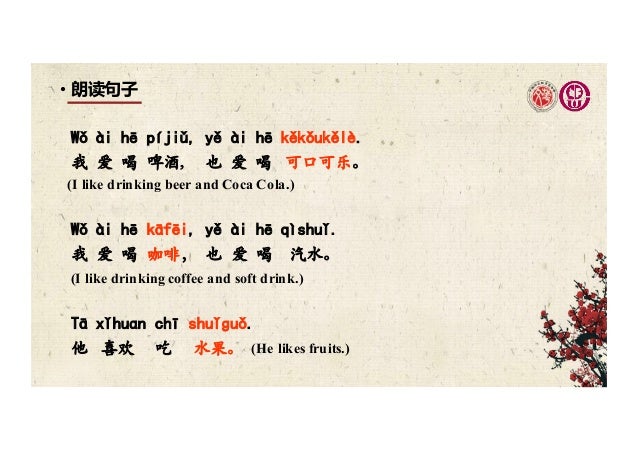 • 朗读句子
Wǒ ài hē píjiǔ, yě ài hē kěkǒukělè.
我 爱 喝 啤酒, 也 爱 喝 可口可乐。
(I like drinking beer and Coca Cola.)
Wǒ ài hē kāfēi, yě ài hē qìshuǐ.
我 爱 喝 咖啡, 也 爱 喝 汽水。
(I like drinking coffee and soft drink.)
Tā xǐhuan chī shuǐguǒ.
他 喜欢 吃 水果。 (He likes fruits.)